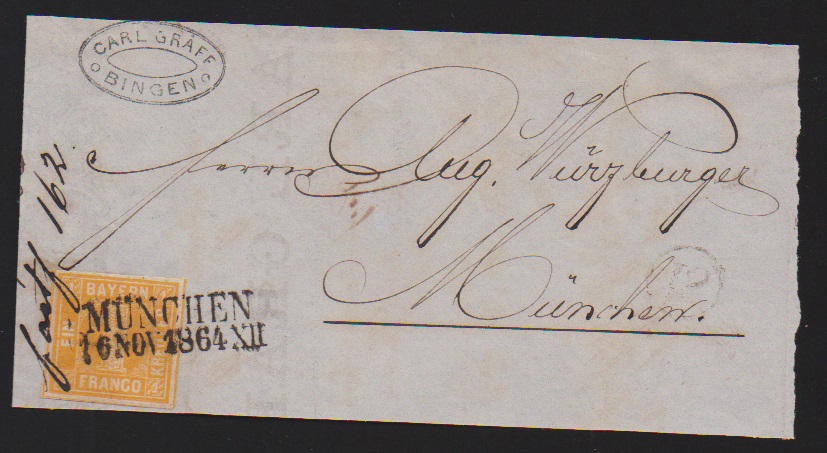 CARL GRÄFF
BINGEN
Herrn Aug. Würzburger
München.
162.
BAYERN
EIN
KR
FRANCO
MÜNCHEN
16 NOV 1864 XII